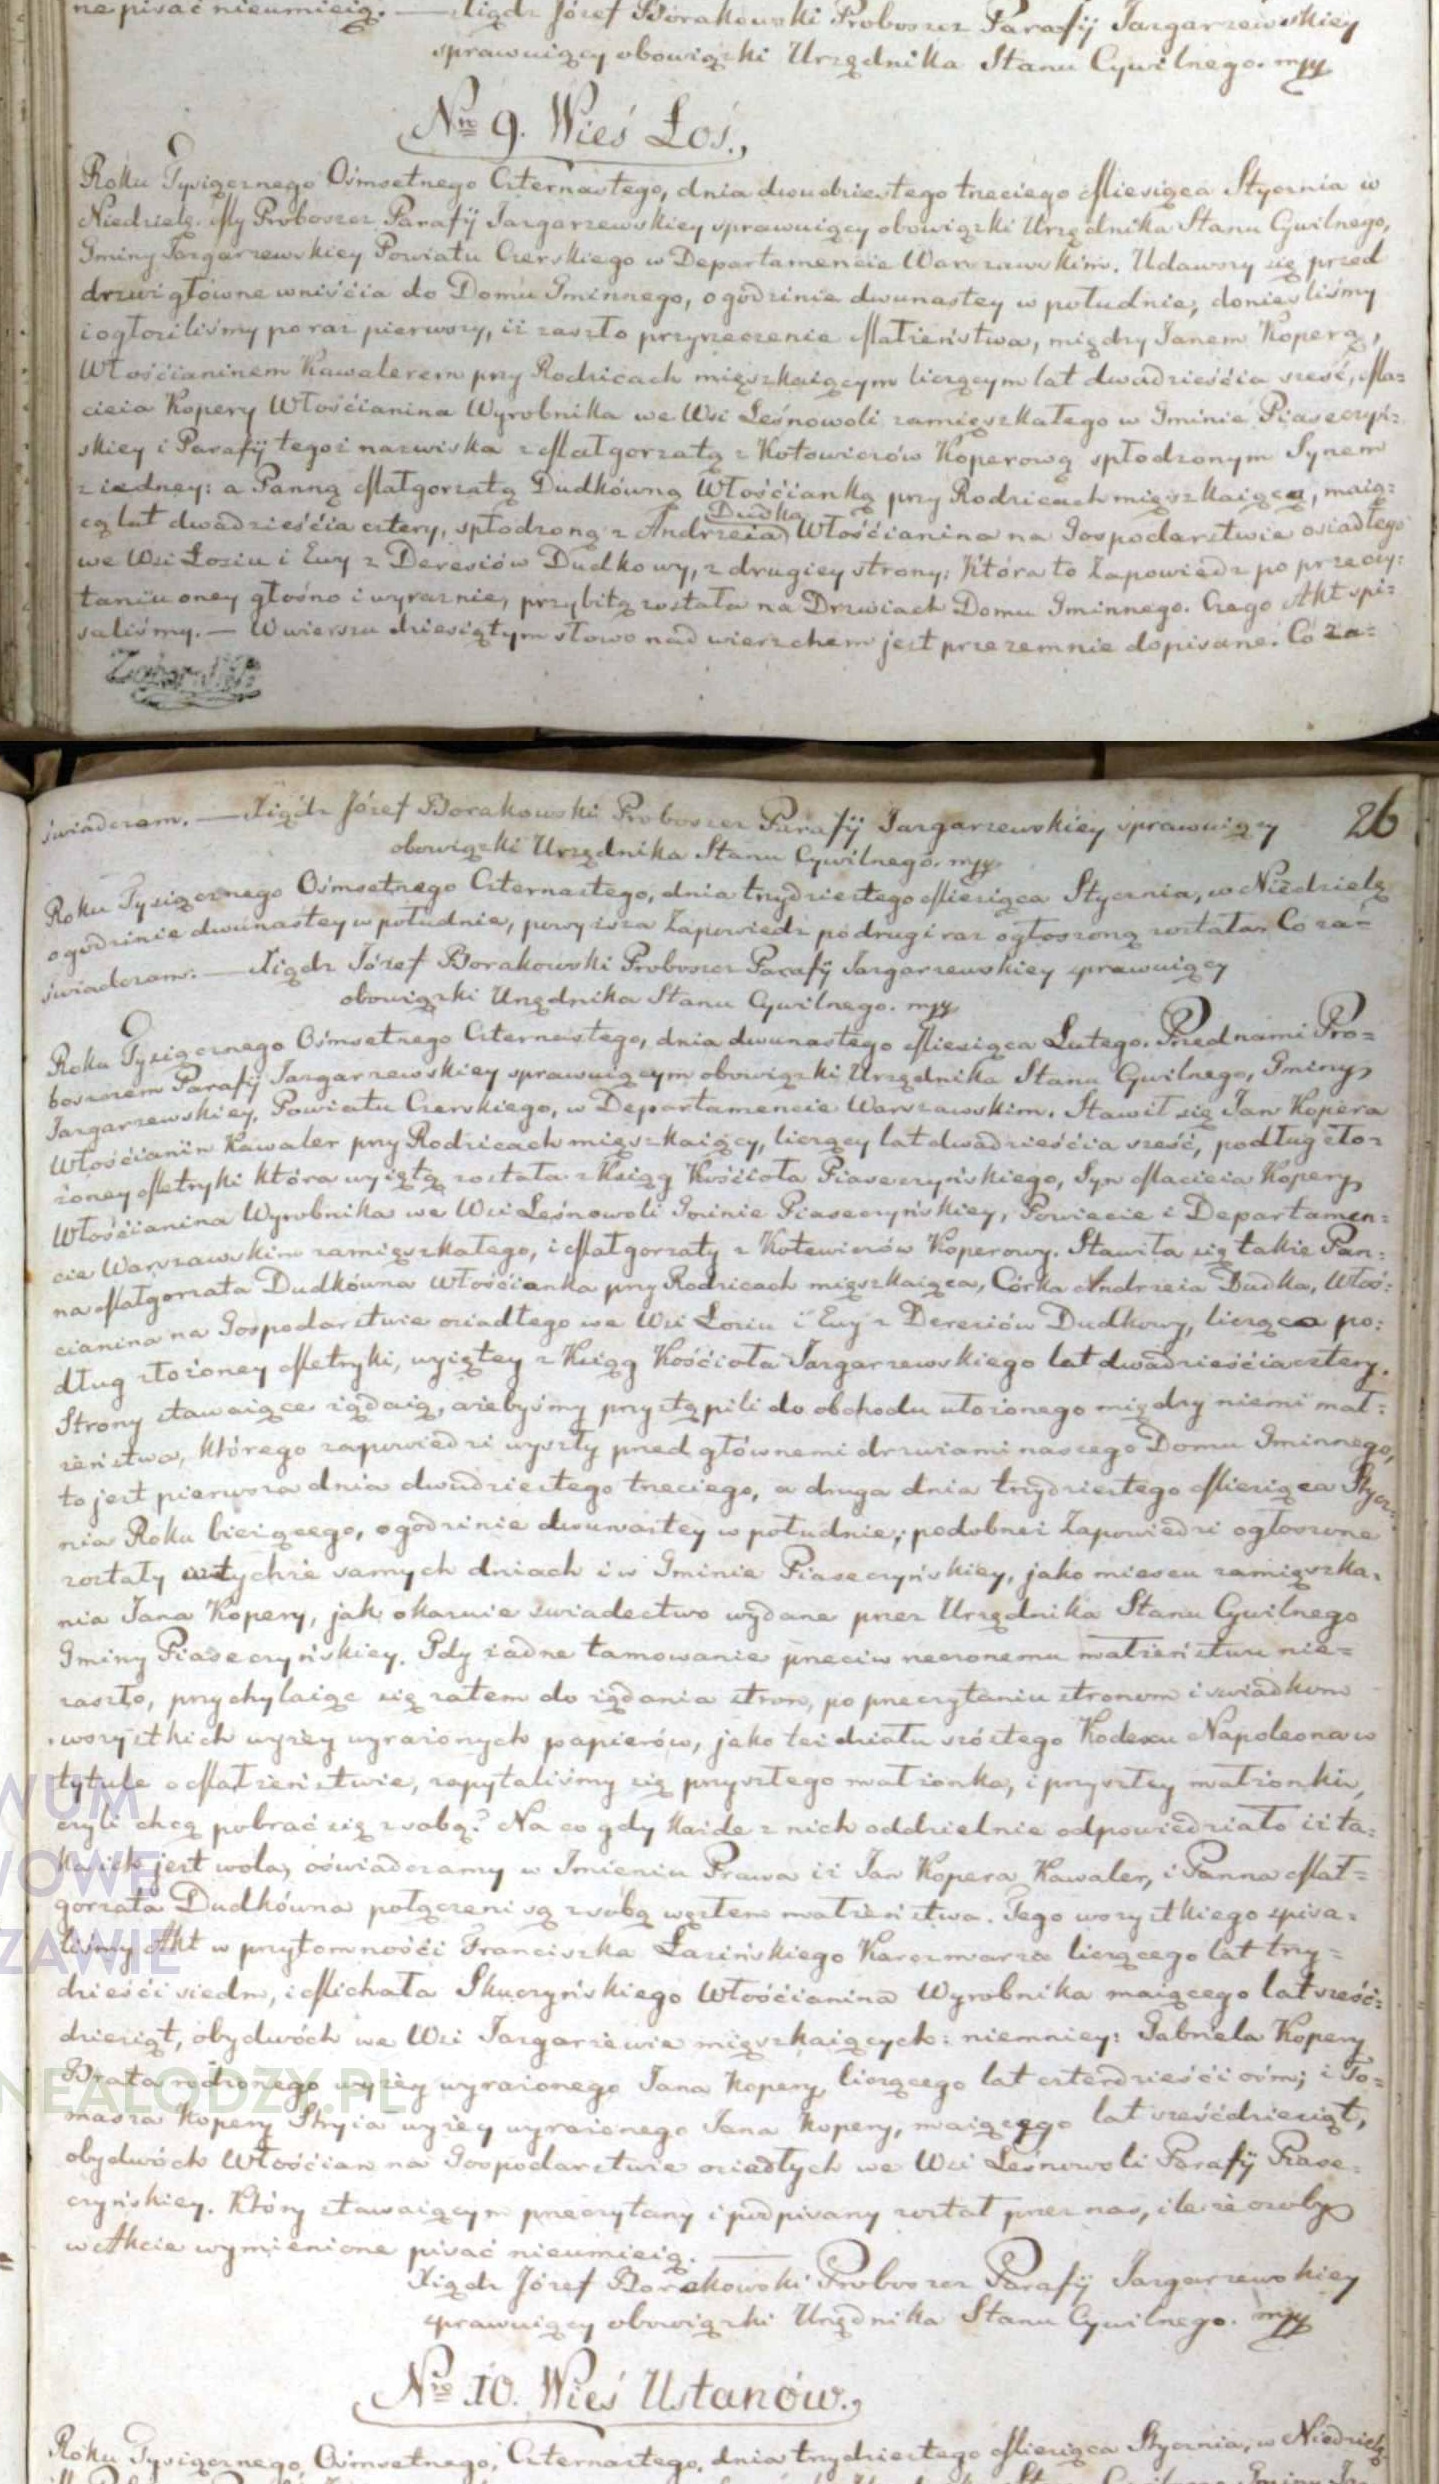 ne pisać nieumieią. — Xiądz Józef Borakowski Proboszcz Parafij Jazgarzewskiey
sprawuiący obowiązki Urzędnika Stanu Cywilnego. mpp
Nro 9. Wieś Łoś.
Roku Tysiącznego Ośmsetnego Czternastego, dnia dwudziestego trzeciego Miesiąca Stycznia w
Niedzielę. My Proboszcz Parafij Jazgarzewskiey sprawuiący obowiązki Urzędnika Stanu Cywilnego,
Gminy Jazgarzewskiey Powiatu Czerskiego w Departamencie Warszawskim. Udawszy się przed
drzwi główne wniścia do Domu Gminnego, o godzinie dwunastey w południe, donieśliśmy
i ogłosiliśmy poraz pierwszy, iż zaszło przyrzeczenie Małżeństwa, między Janem Koperą,
Włościaninem Kawalerem przy Rodzicach mięszkaiącym liczącym lat dwadzieścia sześć, Ma=
cieia Kopery Włościanina Wyrobnika we Wsi Leśnowoli zamięszkałego w Gminie Piaseczyń=
skiey i Parafij tegoż nazwiska z Małgorzatą z Kotowiczów Koperową spłodzonym Synem
z iedney: a Panną Małgorzatą Dudkówną Włościanką przy Rodzicach mięszkaiącą, maią=
cą lat dwadzieścia cztery, spłodzoną z Andrzeia Dudka Włościanina na Gospodarstwie osiadłego
we Wsi Łosiu i Ewy z Deresiów Dudkowy, z drugiey strony: Która to Zapowiedz po przeczy=
taniu oney głośno i wyraznie, przybitą została na Drzwiach Domu Gminnego. Czego Akt spi=
saliśmy. — W wierszu dziesiątym słowo nad wierzchem jest przezemnie dopisane. Co za=
świadczam. — Xiądz Józef Borakowski Proboszcz Parafij Jazgarzewskiey sprawuiący 26
obowiązki Urzędnika Stanu Cywilnego. mpp
Roku Tysiącznego Ośmsetnego Czternastego, dnia trzydziestego Miesiąca Stycznia, w Niedzielę
o godzinie dwunastey w południe, powyższa Zapowiedz po drugi raz ogłoszoną została. Co za=
świadczam. — Xiądz Józef Borakowski Proboszcz Parafij Jazgarzewskiey sprawuiący
obowiązki Urzędnika Stanu Cywilnego. mpp
Roku Tysiącznego Ośmsetnego Czternastego, dnia dwunastego Miesiąca Lutego. Przed nami Pro=
boszczem Parafij Jazgarzewskiey sprawuiącym obowiązki Urzędnika Stanu Cywilnego, Gminy
Jazgarzewskiey, Powiatu Czerskiego, w Departamencie Warszawskim. Stawił się Jan Kopera
Włościanin Kawaler przy Rodzicach mięszkaiący, liczący lat dwadzieścia sześć, podług zło=
żoney Metryki która wyiętą została z Ksiąg Kościoła Piaseczyńskiego, Syn Macieia Kopery
Włościanina Wyrobnika we Wsi Leśnowoli Gminie Piaseczyńskiey, Powiecie i Departamen=
cie Warszawskim zamięszkałego, i Małgorzaty z Kotewiczów Koperowy. Stawiła się także Pan=
na Małgorzata Dudkówna Włościanka przy Rodzicach mięszkaiąca, Córka Andrzeia Dudka, Włoś=
cianina na Gospodarstwie osiadłego we Wsi Łosiu i Ewy z Deresiów Dudkowy, licząca po=
dług złożoney Metryki, wyiętey z Ksiąg Kościoła Jazgarzewskiego lat dwadzieścia cztery.
Strony stawaiące żądaią, ażebyśmy przystąpili do obchodu ułożonego między niemi mał=
żeństwa, którego zapowiedzi wyszły przed głównemi drzwiami naszego Domu Gminnego,
to jest pierwsza dnia dwudziestego trzeciego, a druga dnia trzydziestego Miesiąca Stycz=
nia Roku bieżącego, o godzinie dwunastey w południe; podobneż Zapowiedzi ogłoszone
zostały wtychże samych dniach i w Gminie Piaseczyńskiey, jako miescu zamięszka=
nia Jana Kopery, jak okazuie świadectwo wydane przez Urzędnika Stanu Cywilnego
Gminy Piaseczyńskiey. Gdy żadne tamowanie przeciw rzeczonemu małżeństwu nie=
zaszło, przychylaiąc się zatem do żądania stron, po przeczytaniu stronom i świadkom
wszystkich wyżey wyrażonych papierów, jako też działu szóstego Kodexu Napoleona w
tytule o Małżeństwie, zapytaliśmy się przyszłego małżonka, i przyszłey małżonki,
czyli chcą pobrać się z sobą? Na co gdy każde z nich oddzielnie odpowiedziało iż ta=
ka ich jest wola, oświadczamy w Imieniu Prawa iż Jan Kopera Kawaler, i Panna Mał=
gorzata Dudkówna połączeni są z sobą węzłem małżeństwa. Tego wszystkiego spisa=
liśmy Akt w przytomności Franciszka Łazińskiego Karczmarza liczącego lat trzy=
dzieści siedm, i Michała Skuczyńskiego Włościanina Wyrobnika maiącego lat sześć=
dziesiąt, obydwóch we Wsi Jazgarzewie mięszkaiących: niemniey: Gabriela Kopery
Brata rodzonego wyżey wyrażonego Jana Kopery, liczącego lat czterdzieści ośm; i To=
masza Kopery Stryia wyżey wyrażonego Jana Kopery, maiącego lat sześćdziesiąt,
obydwóch Włościan na Gospodarstwie osiadłych we Wsi Leśnowoli Parafij Piase=
czyńskiey. Który stawaiącym przeczytany i podpisany został przez nas, ile że osoby
w Akcie wymienione pisać nieumieią. —
Xiądz Józef Borakowski Proboszcz Parafij Jazgarzewskiey
sprawuiący obowiązki Urzędnika Stanu Cywilnego. mpp
Nro 10. Wieś Ustanów.
Roku Tysiącznego Ośmsetnego, Czternastego, dnia trzydziestego Miesiąca Stycznia, w Niedzielę